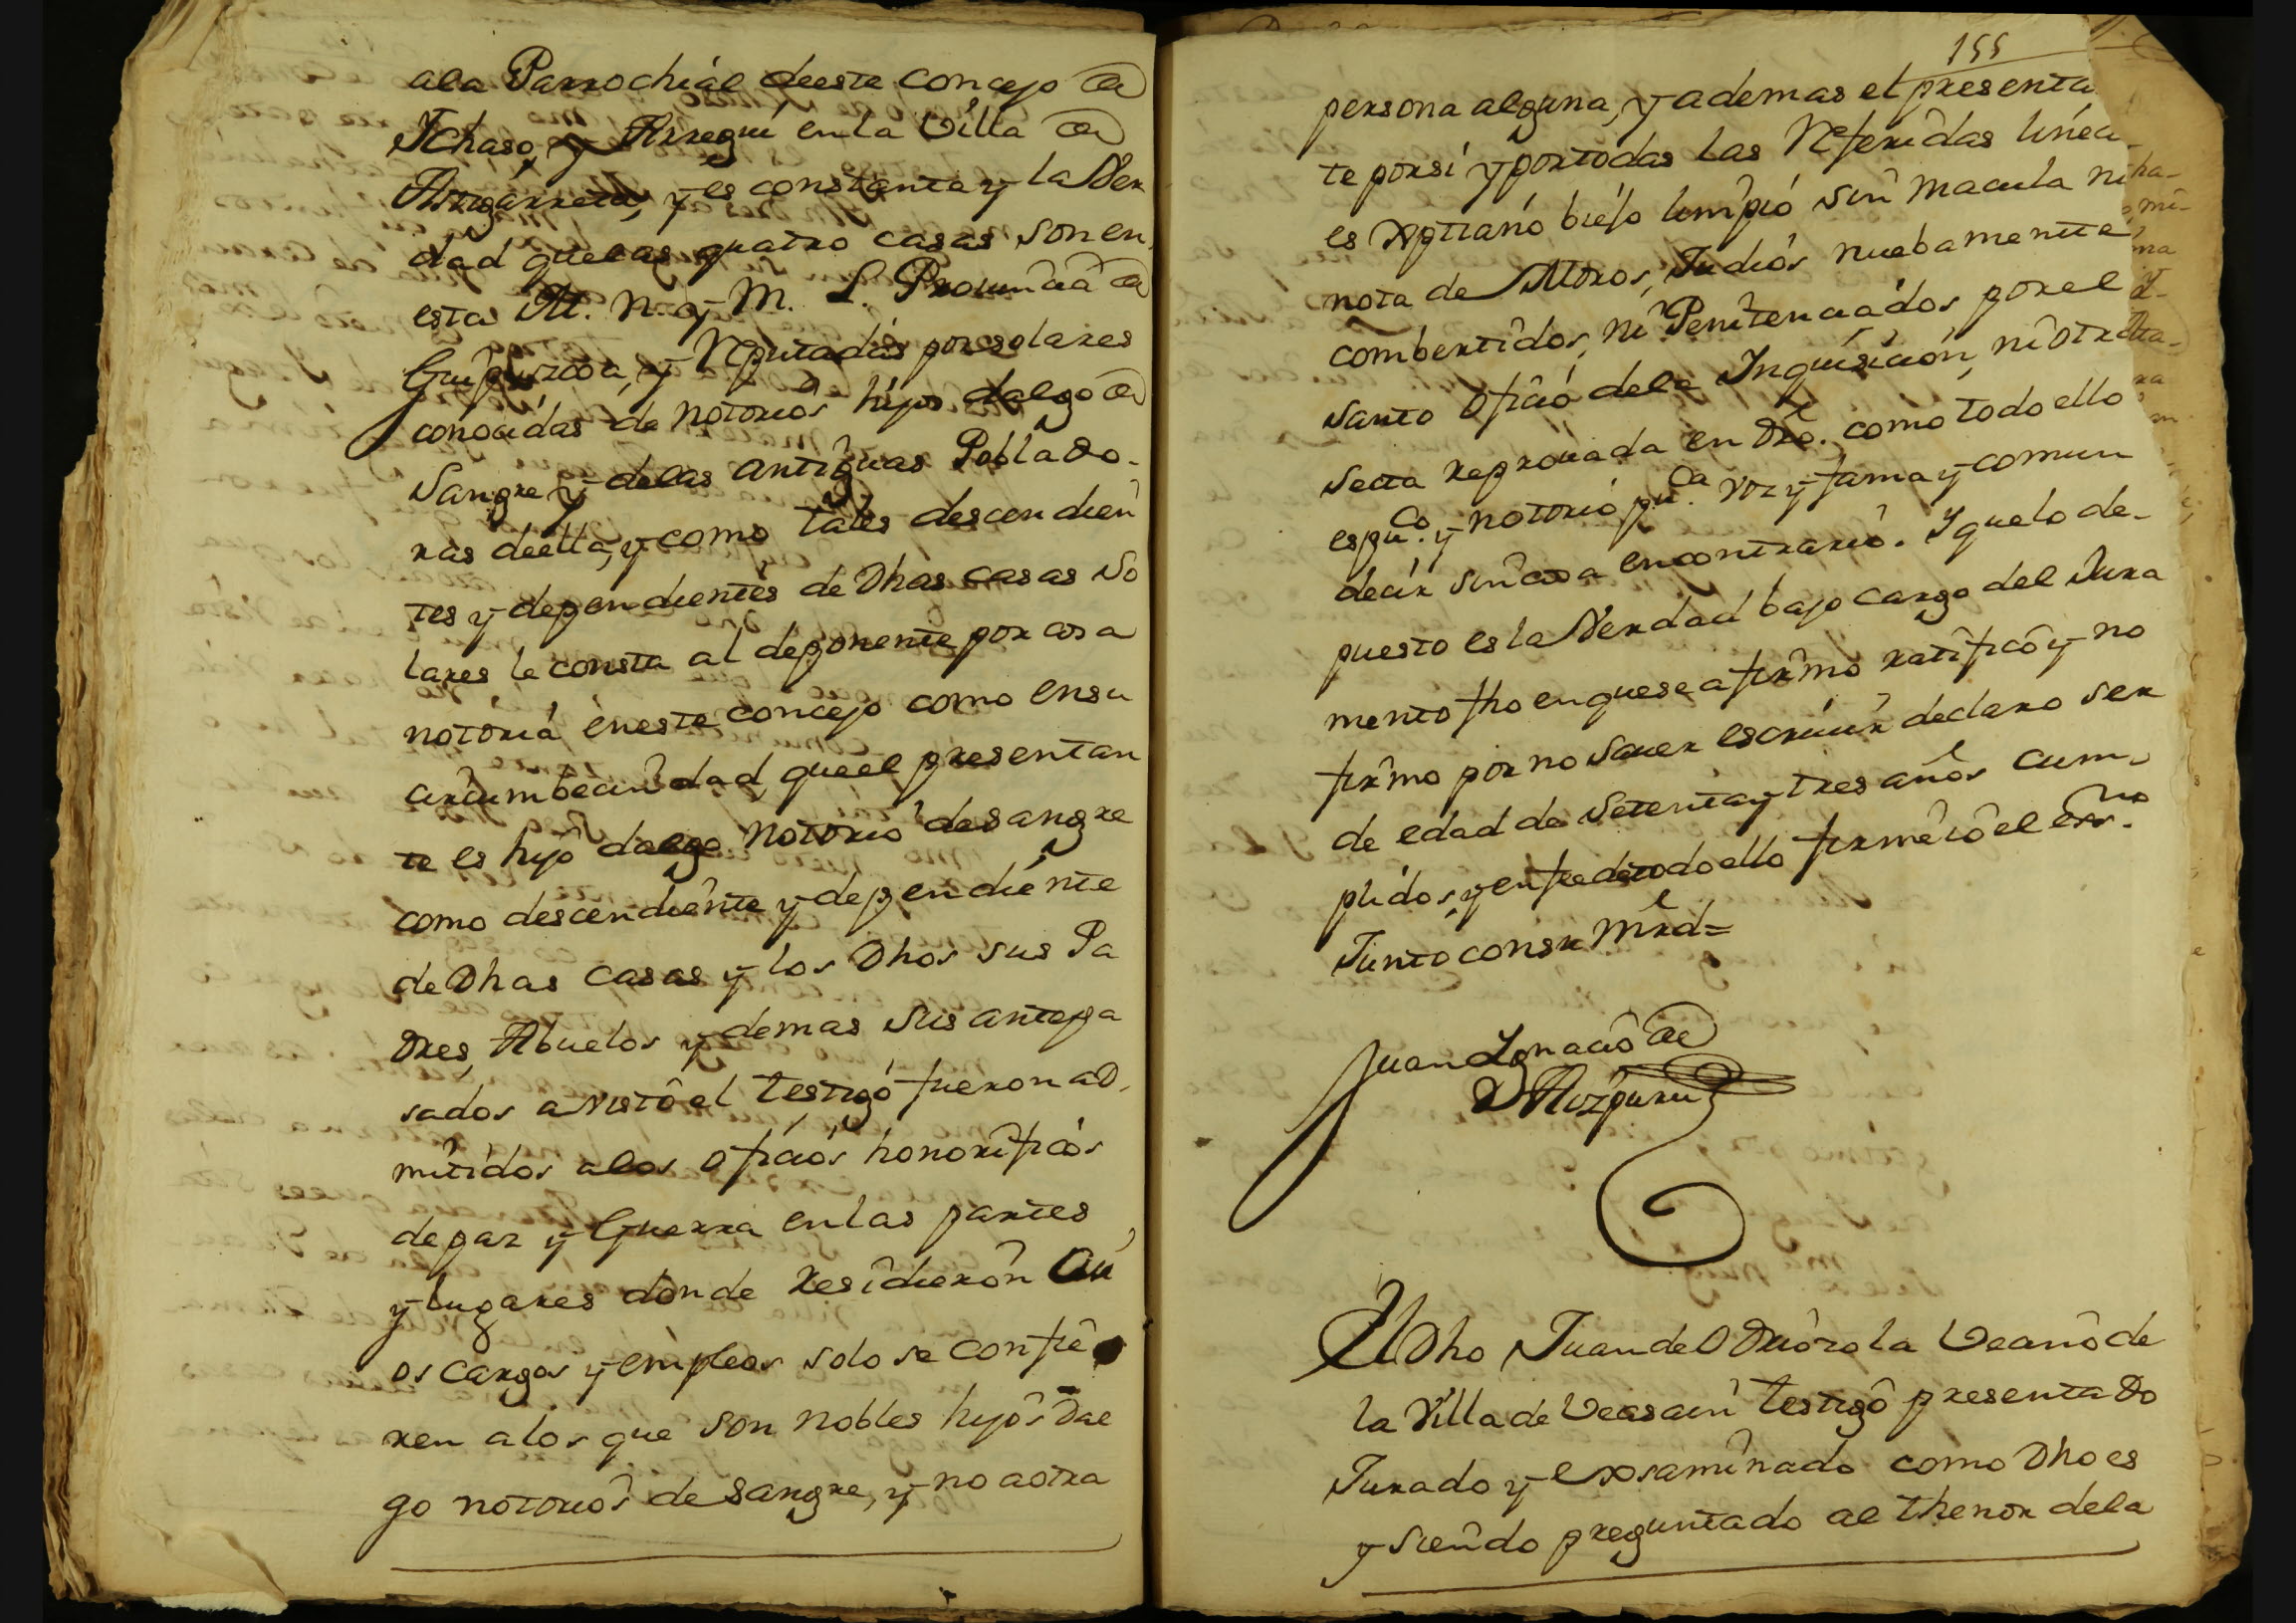 ala Parrochiál deeste concejo de
Ychaso, y Arregui en la Villa de
Astigarreta, y es constante y la Ver
dad que las quatro casas son en
esta M. N. y M. L. Provincia de
Guipuzcoa, y Reputadas por solares
conocidas de notorios hijos dalgo de
Sangre y delas antiguas Poblado-
ras deella, y como tales descendien
tes y dependientes de Dhas casas so
lares le consta al deponente por cosa
notoria eneste concejo como ensu
circumbecindad, que el presentan
te es hijo dalgo notorio de sangre
como descendiente y dependiente
de Dhas casas y los Dhos sus Pa
dres, Abuelos y demas sus antepa
sados a visto el testigo fueron ad-
mitidos alos oficios honorificos
de paz y Guerra en las partes
y lugares donde Residieron Cui
os cargos y empleos solo se confie
ren alos que son nobles hijos dal
go notorios de sangre, y no aotra
155
persona alguna, y ademas el presenta
te porsi y por todas las Referidas linea
es xptiano biejo limpio sin macula ni
nota de Moros, Judios nuebamente
combertidos, ni Penitenciados por el
Santo Oficio dela Inquisicion, ni otra
Secta reprouada en dro. como todo ello
es puco. y notorio puca. voz y fama y comun
decir sin cosa encontrario. Y que lo de-
puesto es la Verdad bajo cargo del Jura
mento fho enquese afirmo ratifico y no
firmo por no sauer escriuir declaro ser
de edad de setenta y tres años cum-
plidos, y enfee detodoello firme io el essno.
Junto consu mrd=
Juan Ygnacio de
Aozpuru
El Dho Juan de Odriozola Vecino de
la Villa de Veasain testigo presentado
Jurado y exsaminado como Dho es
y siendo preguntado al thenor dela